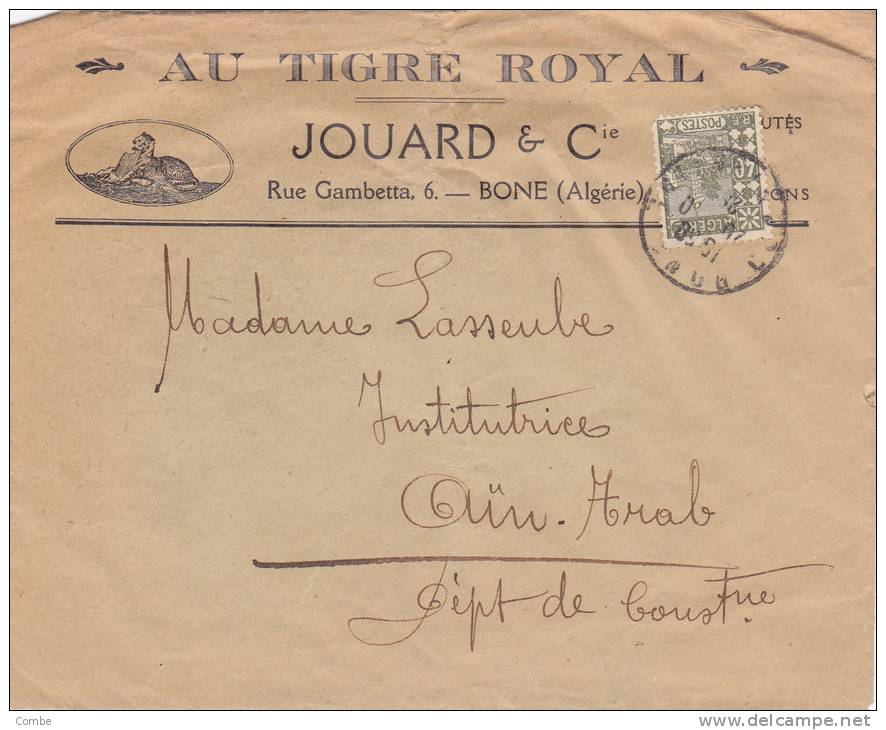 AU TIGRE ROYAL
JOUARD & Cie
UTÉS
Rue Gambetta, 6. — BONE (Algérie)
ONS
R.F. POSTES
ALGERIE
Madame Lasseube
Institutrice
Aïn-Arab
Dépt de Constne
Combe
www.delcampe.net